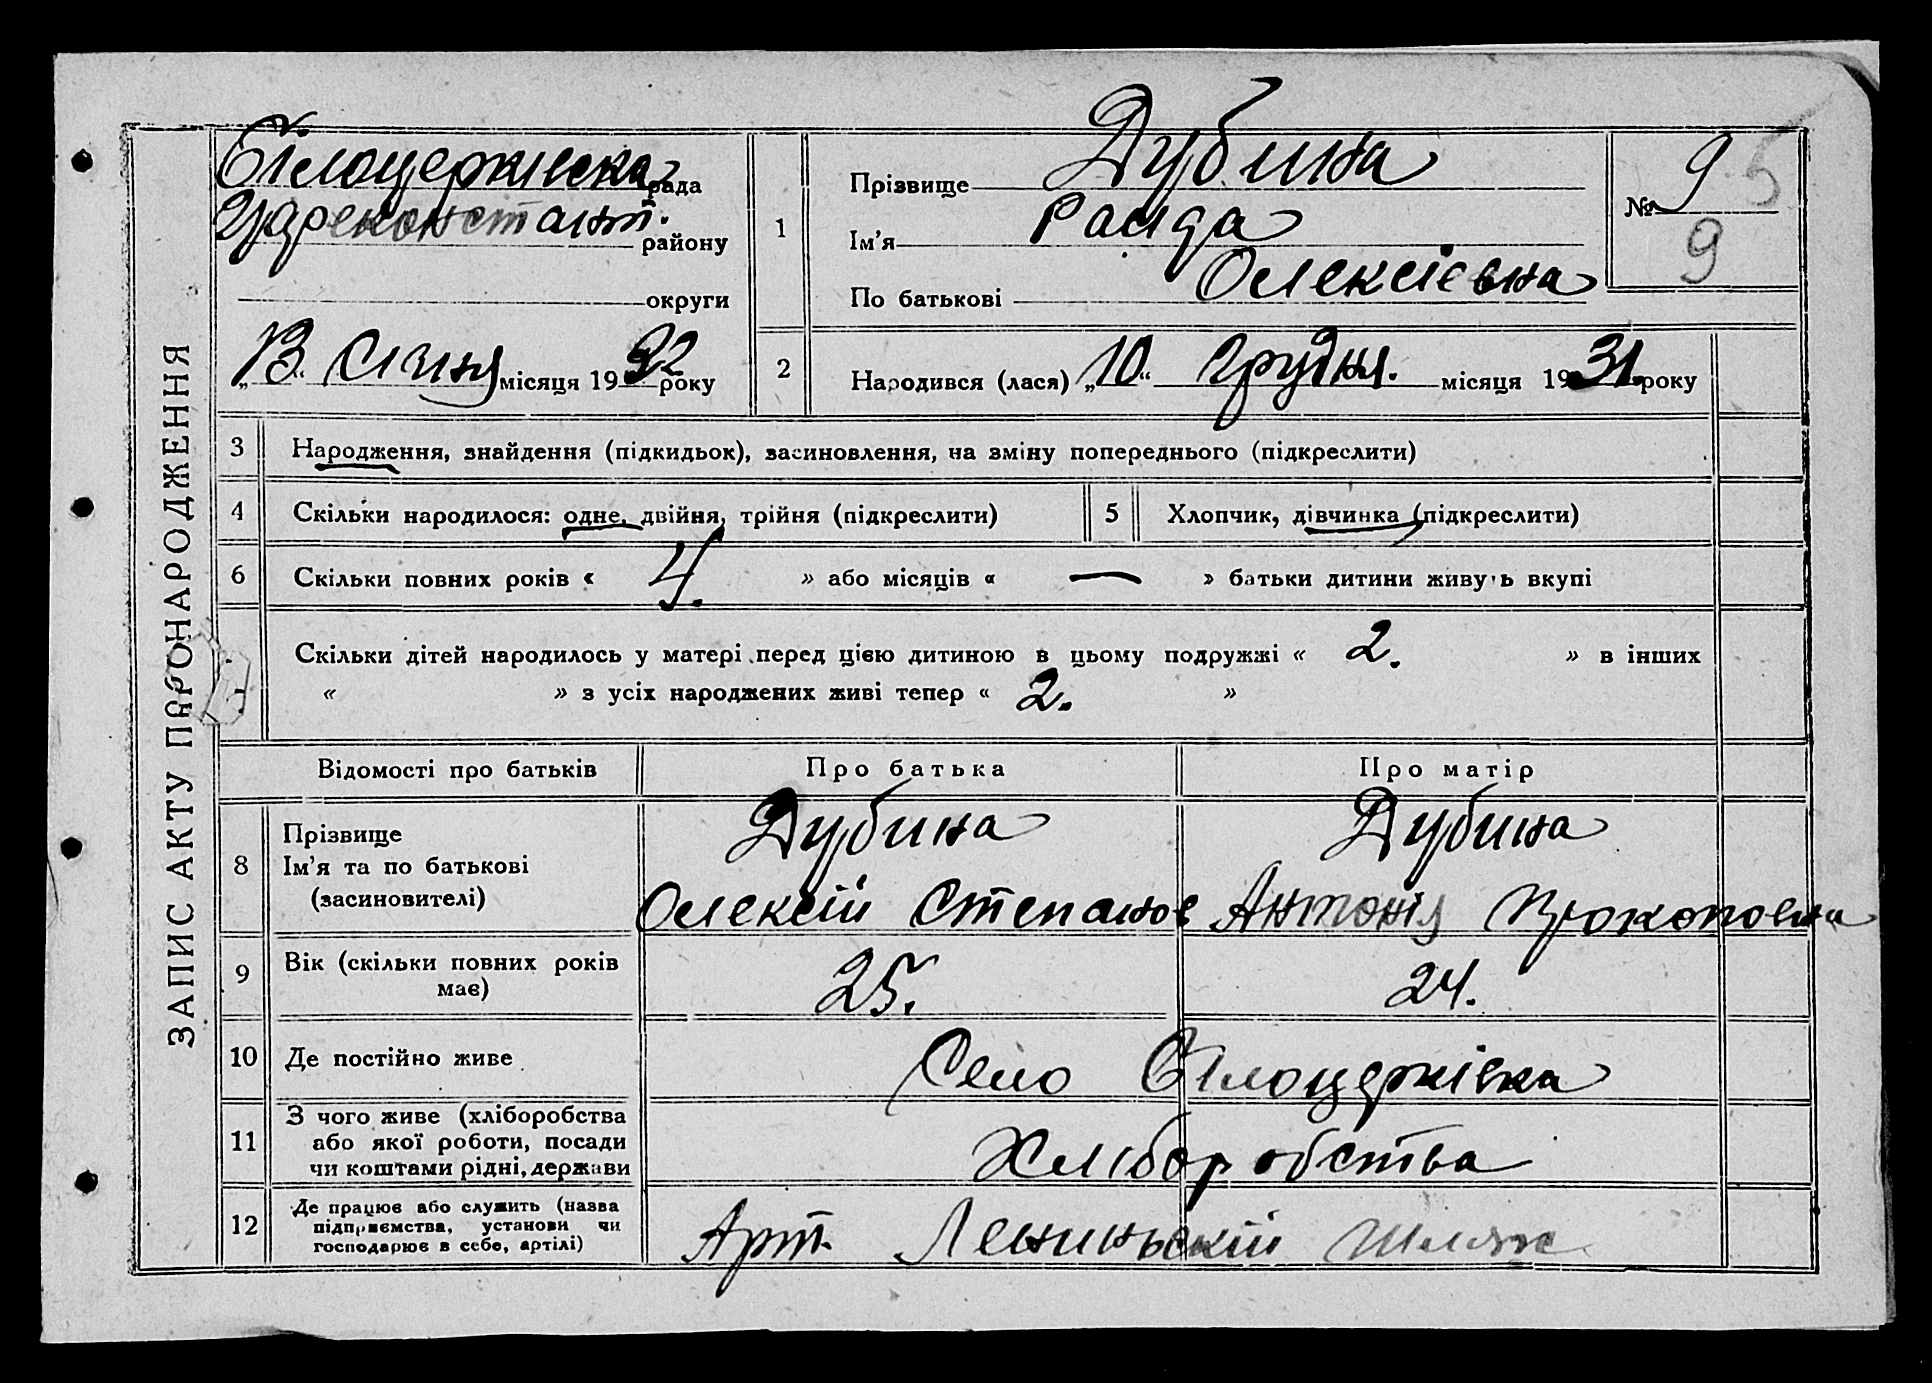 ЗАПИС АКТУ ПРО НАРОДЖЕННЯ
Білоцерківска рада
району
округи
„13“ Січня місяця 1932 року
1
Прізвище Дубина
Ім'я Раида
По батькові Олексієвна
№ 9
5
9
2
Народився (лася) „10“ Грудня. місяця 1931. року
3 Народження, знайдення (підкидьок), засиновлення, на зміну попереднього (підкреслити)
4 Скільки народилося: одне, двійня, трійня (підкреслити) 5 Хлопчик, дівчинка (підкреслити)
6 Скільки повних років « 4. » або місяців « — » батьки дитини живуть вкупі
Скільки дітей народилось у матері перед цією дитиною в цьому подружжі « 2. » в інших
« » з усіх народжених живі тепер « 2. »
Відомості про батьків Про батька Про матір
8 Прізвище Дубина Дубина
Ім'я та по батькові
(засиновителі) Олексій Степанов Антонія Прокоповна
9 Вік (скільки повних років має) 25. 24.
10 Де постійно живе Село Білоцерківка
11 З чого живе (хліборобства
або якої роботи, посади Хліборобства
чи коштами рідні, держави
12 Де працює або служить (назва
підприємства, установи чи Арт. Лениньский Шлях
господарює в себе, артілі)